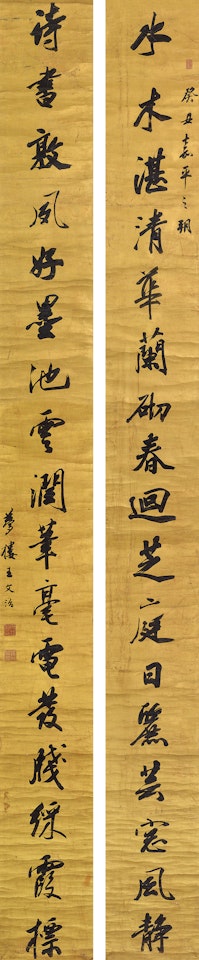 癸丑嘉平之朔
水木湛清華蘭砌春迴芝庭日麗芸窓風静
詩書敦夙好墨池雲潤筆毫電發牋綵霞標
夢樓王文治